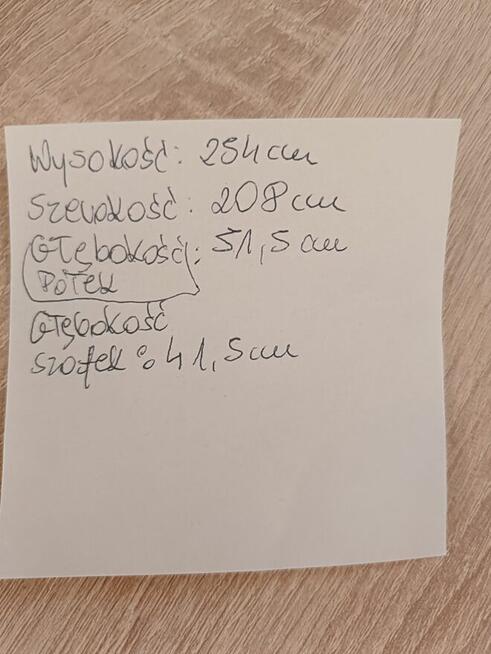 Wysokość: 254 cm
Szerokość: 208 cm
Głębokość: 51,5 cm
Półek
Głębokość
szafek: 41,5 cm